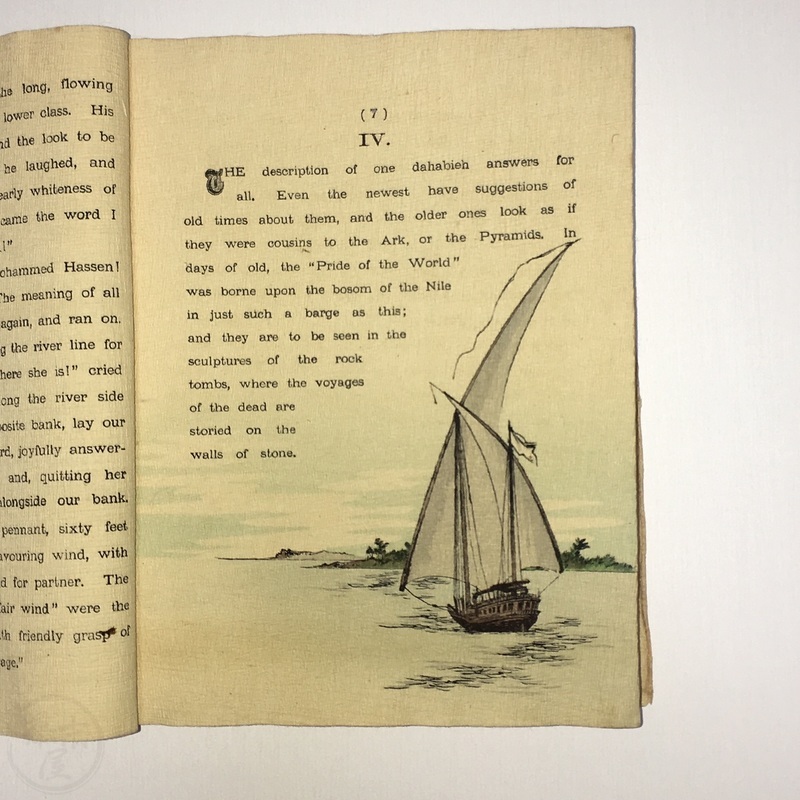 he long, flowing
lower class. His
nd the look to be
he laughed, and
early whiteness of
came the word I
!"
ohammed Hassen!
he meaning of all
again, and ran on.
g the river line for
here she is!" cried
ong the river side
posite bank, lay our
rd, joyfully answer-
and, quitting her
longside our bank.
pennant, sixty feet
vouring wind, with
d for partner. The
fair wind" were the
th friendly grasp of
age."
(7)
IV.
THE description of one dahabieh answers for
all. Even the newest have suggestions of
old times about them, and the older ones look as if
they were cousins to the Ark, or the Pyramids. In
days of old, the "Pride of the World"
was borne upon the bosom of the Nile
in just such a barge as this;
and they are to be seen in the
sculptures of the rock
tombs, where the voyages
of the dead are
storied on the
walls of stone.